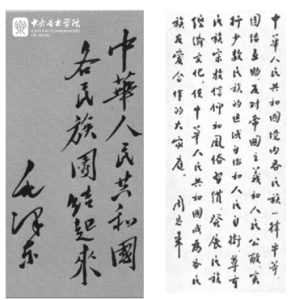 中央音乐学院
CENTRAL CONSERVATORY OF MUSIC
中華人民共和國
各民族團結起來
毛泽东
中華人民共和國境内各民族一律平等,
團結互助反对帝國主義和人民公敵实
行少数民族的区域自治和人民自衛尊重
民族宗教信仰和風俗習慣發展民族
經濟文化,使中華人民共和國成為各民
族友爱合作的大家庭。 周恩来